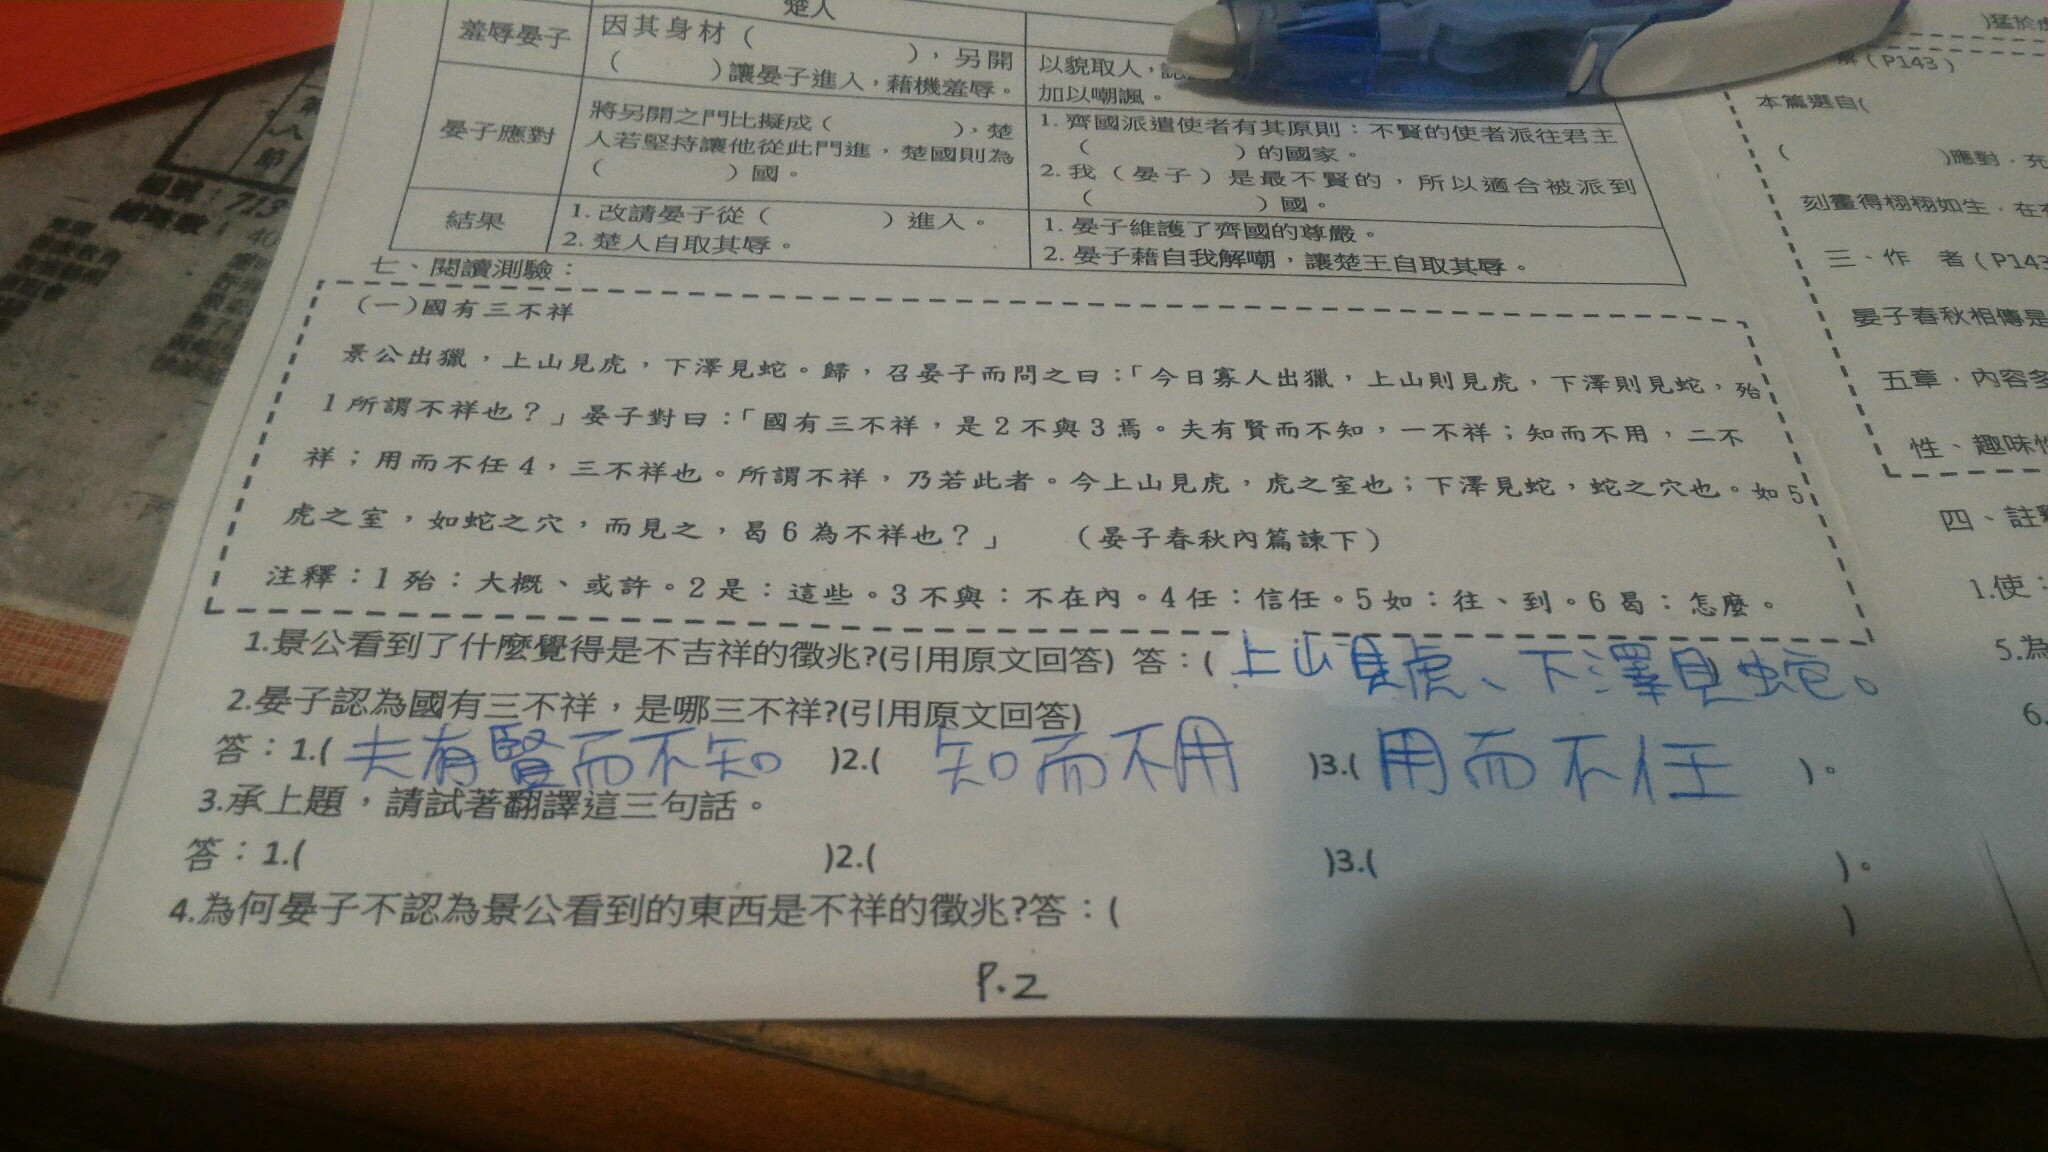 楚人
羞辱晏子
因其身材( ),另開
( )讓晏子進入,藉機羞辱。
以貌取人,
加以嘲諷。
晏子應對
將另開之門比擬成( ),楚
人若堅持讓他從此門進,楚國則為
( )國。
1. 齊國派遣使者有其原則:不賢的使者派往君主
( )的國家。
2. 我(晏子)是最不賢的,所以適合被派到
( )國。
結果
1. 改請晏子從( )進入。
2. 楚人自取其辱。
1. 晏子維護了齊國的尊嚴。
2. 晏子藉自我解嘲,讓楚王自取其辱。
七、閱讀測驗:
(一)國有三不祥
景公出獵,上山見虎,下澤見蛇。歸,召晏子而問之曰:「今日寡人出獵,上山則見虎,下澤則見蛇,殆
1所謂不祥也?」晏子對曰:「國有三不祥,是2不與3焉。夫有賢而不知,一不祥;知而不用,二不
祥;用而不任4,三不祥也。所謂不祥,乃若此者。今上山見虎,虎之室也;下澤見蛇,蛇之穴也。如5
虎之室,如蛇之穴,而見之,曷6為不祥也?」 (晏子春秋內篇諫下)
注釋:1殆:大概、或許。2是:這些。3不與:不在內。4任:信任。5如:往、到。6曷:怎麼。
1.景公看到了什麼覺得是不吉祥的徵兆?(引用原文回答) 答:( 上山見虎、下澤見蛇。
2.晏子認為國有三不祥,是哪三不祥?(引用原文回答)
答:1.( 夫有賢而不知 )2.( 知而不用 )3.( 用而不任 )。
3.承上題,請試著翻譯這三句話。
答:1.( )2.( )3.( )。
4.為何晏子不認為景公看到的東西是不祥的徵兆?答:( )
P.2
)猛於
(P143)
本篇選自(
( )應對,充
刻畫得栩栩如生,在
三、作 者(P143
晏子春秋相傳是
五章,內容多
性、趣味性
四、註釋
1.使:
5.為
6.
節
713
40